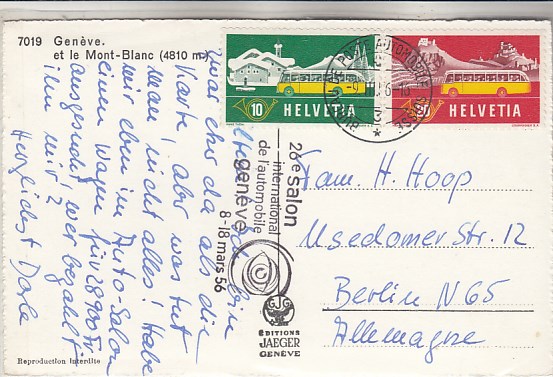 7019 Genève.
et le Mont-Blanc (4810 m)
10 HELVETIA
20 HELVETIA
26e salon
international
de l'automobile
genève
8-18 mars 56
bin
zwar eher da als die
Karte! aber was tut
man nicht alles! Habe
mir eben im Auto-Salon
einen Wagen für 28900 Fr
ausgesucht, wer bezahlt
ihn mir?
Herzlichst
Fam. H. Hoop
Usedomer Str. 12
Berlin N65
Allemagne
EJG
ÉDITIONS
JAEGER
GENÈVE
Reproduction interdite